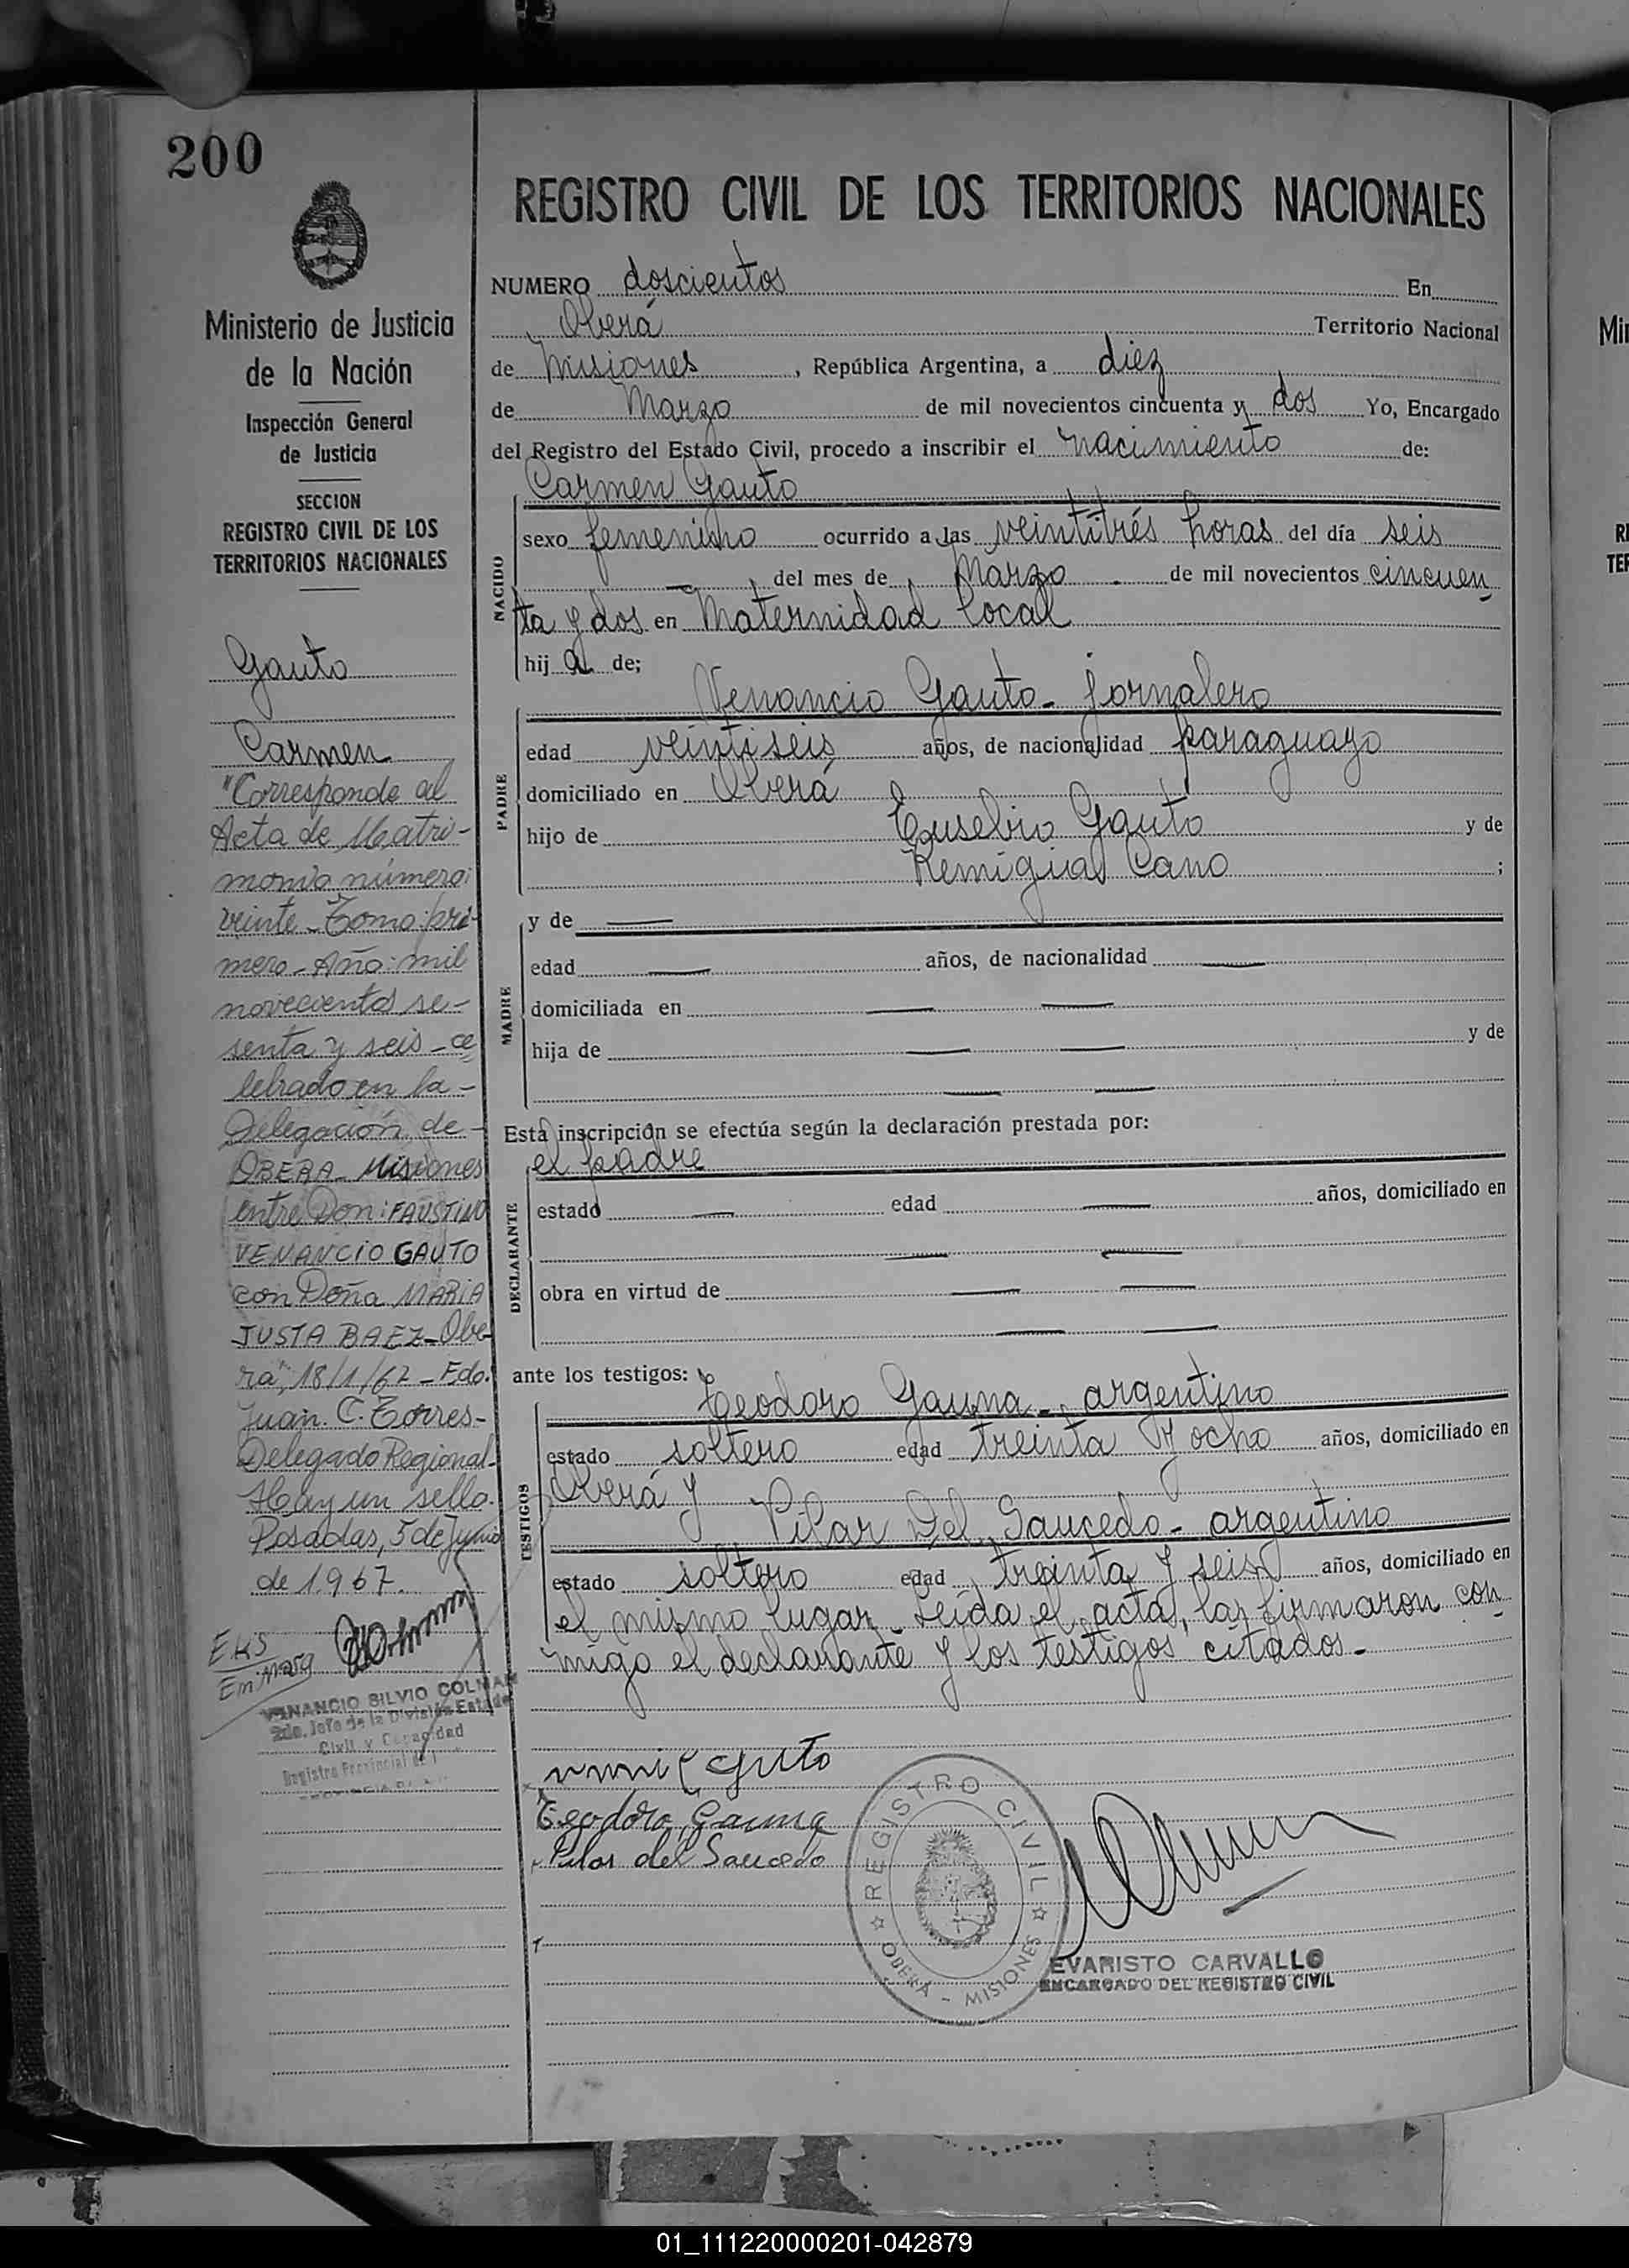 200
Ministerio de Justicia
de la Nación
Inspección General
de Justicia
SECCION
REGISTRO CIVIL DE LOS
TERRITORIOS NACIONALES
Gauto
Carmen
"Corresponde al
Acta de Matri-
monio número:
veinte - Tomo: pri-
mero - Año: mil
novecientos se-
senta y seis - ce
lebrado en la -
Delegación de -
OBERA - Misiones
entre Don: FAUSTINO
VENANCIO GAUTO
con Doña MARIA
JUSTA BAEZ - Obe-
rá", 18/1/67 - Fdo.
Juan C. Torres -
Delegado Regional -
Hay un sello.
Posadas, 5 de Junio
de 1967.
VENANCIO SILVIO COLMAN
2do. Jefe de la División Estado
Civil y Capacidad
REGISTRO CIVIL DE LOS TERRITORIOS NACIONALES
NUMERO doscientos En
Oberá Territorio Nacional
de Misiones, República Argentina, a diez
de Marzo de mil novecientos cincuenta y dos Yo, Encargado
del Registro del Estado Civil, procedo a inscribir el nacimiento de:
Carmen Gauto
NACIDO
sexo femenino ocurrido a las veintitrés horas del día seis
del mes de Marzo de mil novecientos cincuen
ta y dos en Maternidad local
hija de;
Venancio Gauto - jornalero
PADRE
edad veintiseis años, de nacionalidad paraguayo
domiciliado en Oberá
hijo de Eusebio Gauto y de
Remigia Cano ;
MADRE
y de
edad años, de nacionalidad
domiciliada en
hija de y de
Esta inscripción se efectúa según la declaración prestada por:
el padre
DECLARANTE
estado edad años, domiciliado en
obra en virtud de
ante los testigos:
Teodoro Gauna - argentino
TESTIGOS
estado soltero edad treinta y ocho años, domiciliado en
Oberá y
Pilar Del Saucedo - argentino
estado soltero edad treinta y seis años, domiciliado en
el mismo lugar. Leida el acta, la firmaron con
migo el declarante y los testigos citados -
Teodoro Gauna
Pilar del Saucedo
REGISTRO CIVIL
OBERÁ - MISIONES
EVARISTO CARVALLO
ENCARGADO DEL REGISTRO CIVIL
01_111220000201-042879